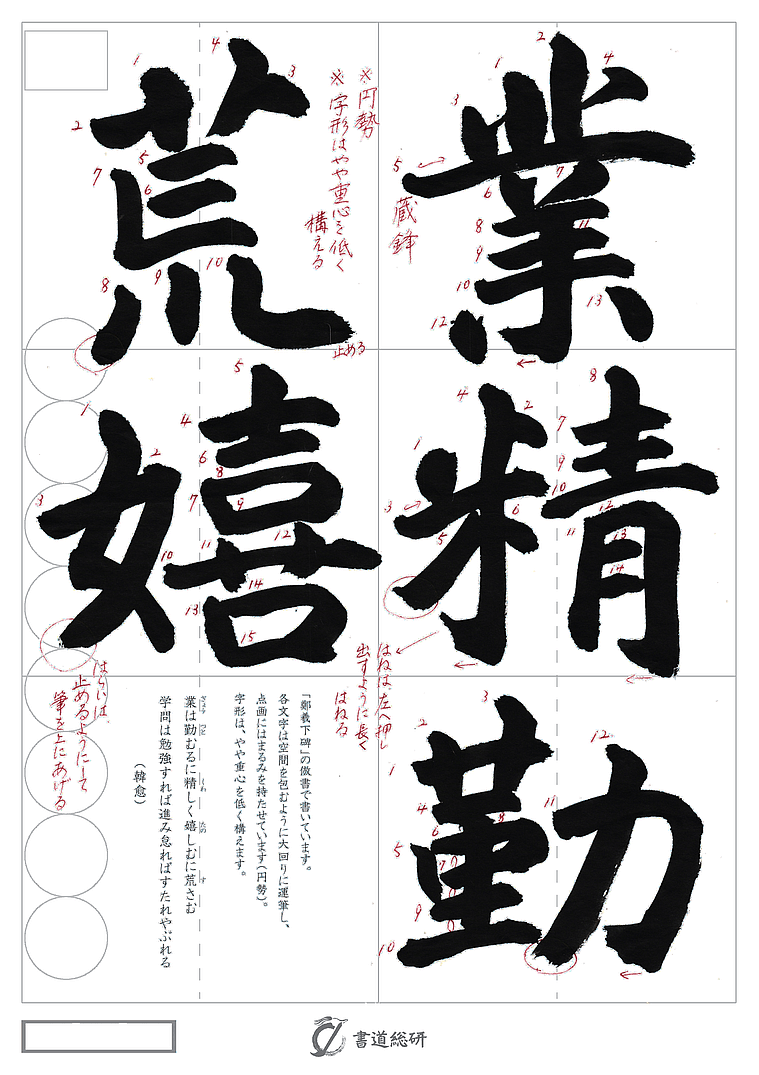 業精勤
荒嬉
※円勢
※字形はやや重心を低く
構える
蔵鋒
止める
はねは、左へ押し
出すように長く
はねる
はらいは、
止めるようにして
筆を上にあげる
「鄭羲下碑」の倣書で書いています。
各文字は空間を包むように大回りに運筆し、
点画にはまるみを持たせています(円勢)。
字形は、やや重心を低く構えます。
業は勤むるに精しく嬉しむに荒さむ
ぎょう つと くわ たの す
学問は勉強すれば進み怠ればすたれやぶれる
(韓愈)
書道総研